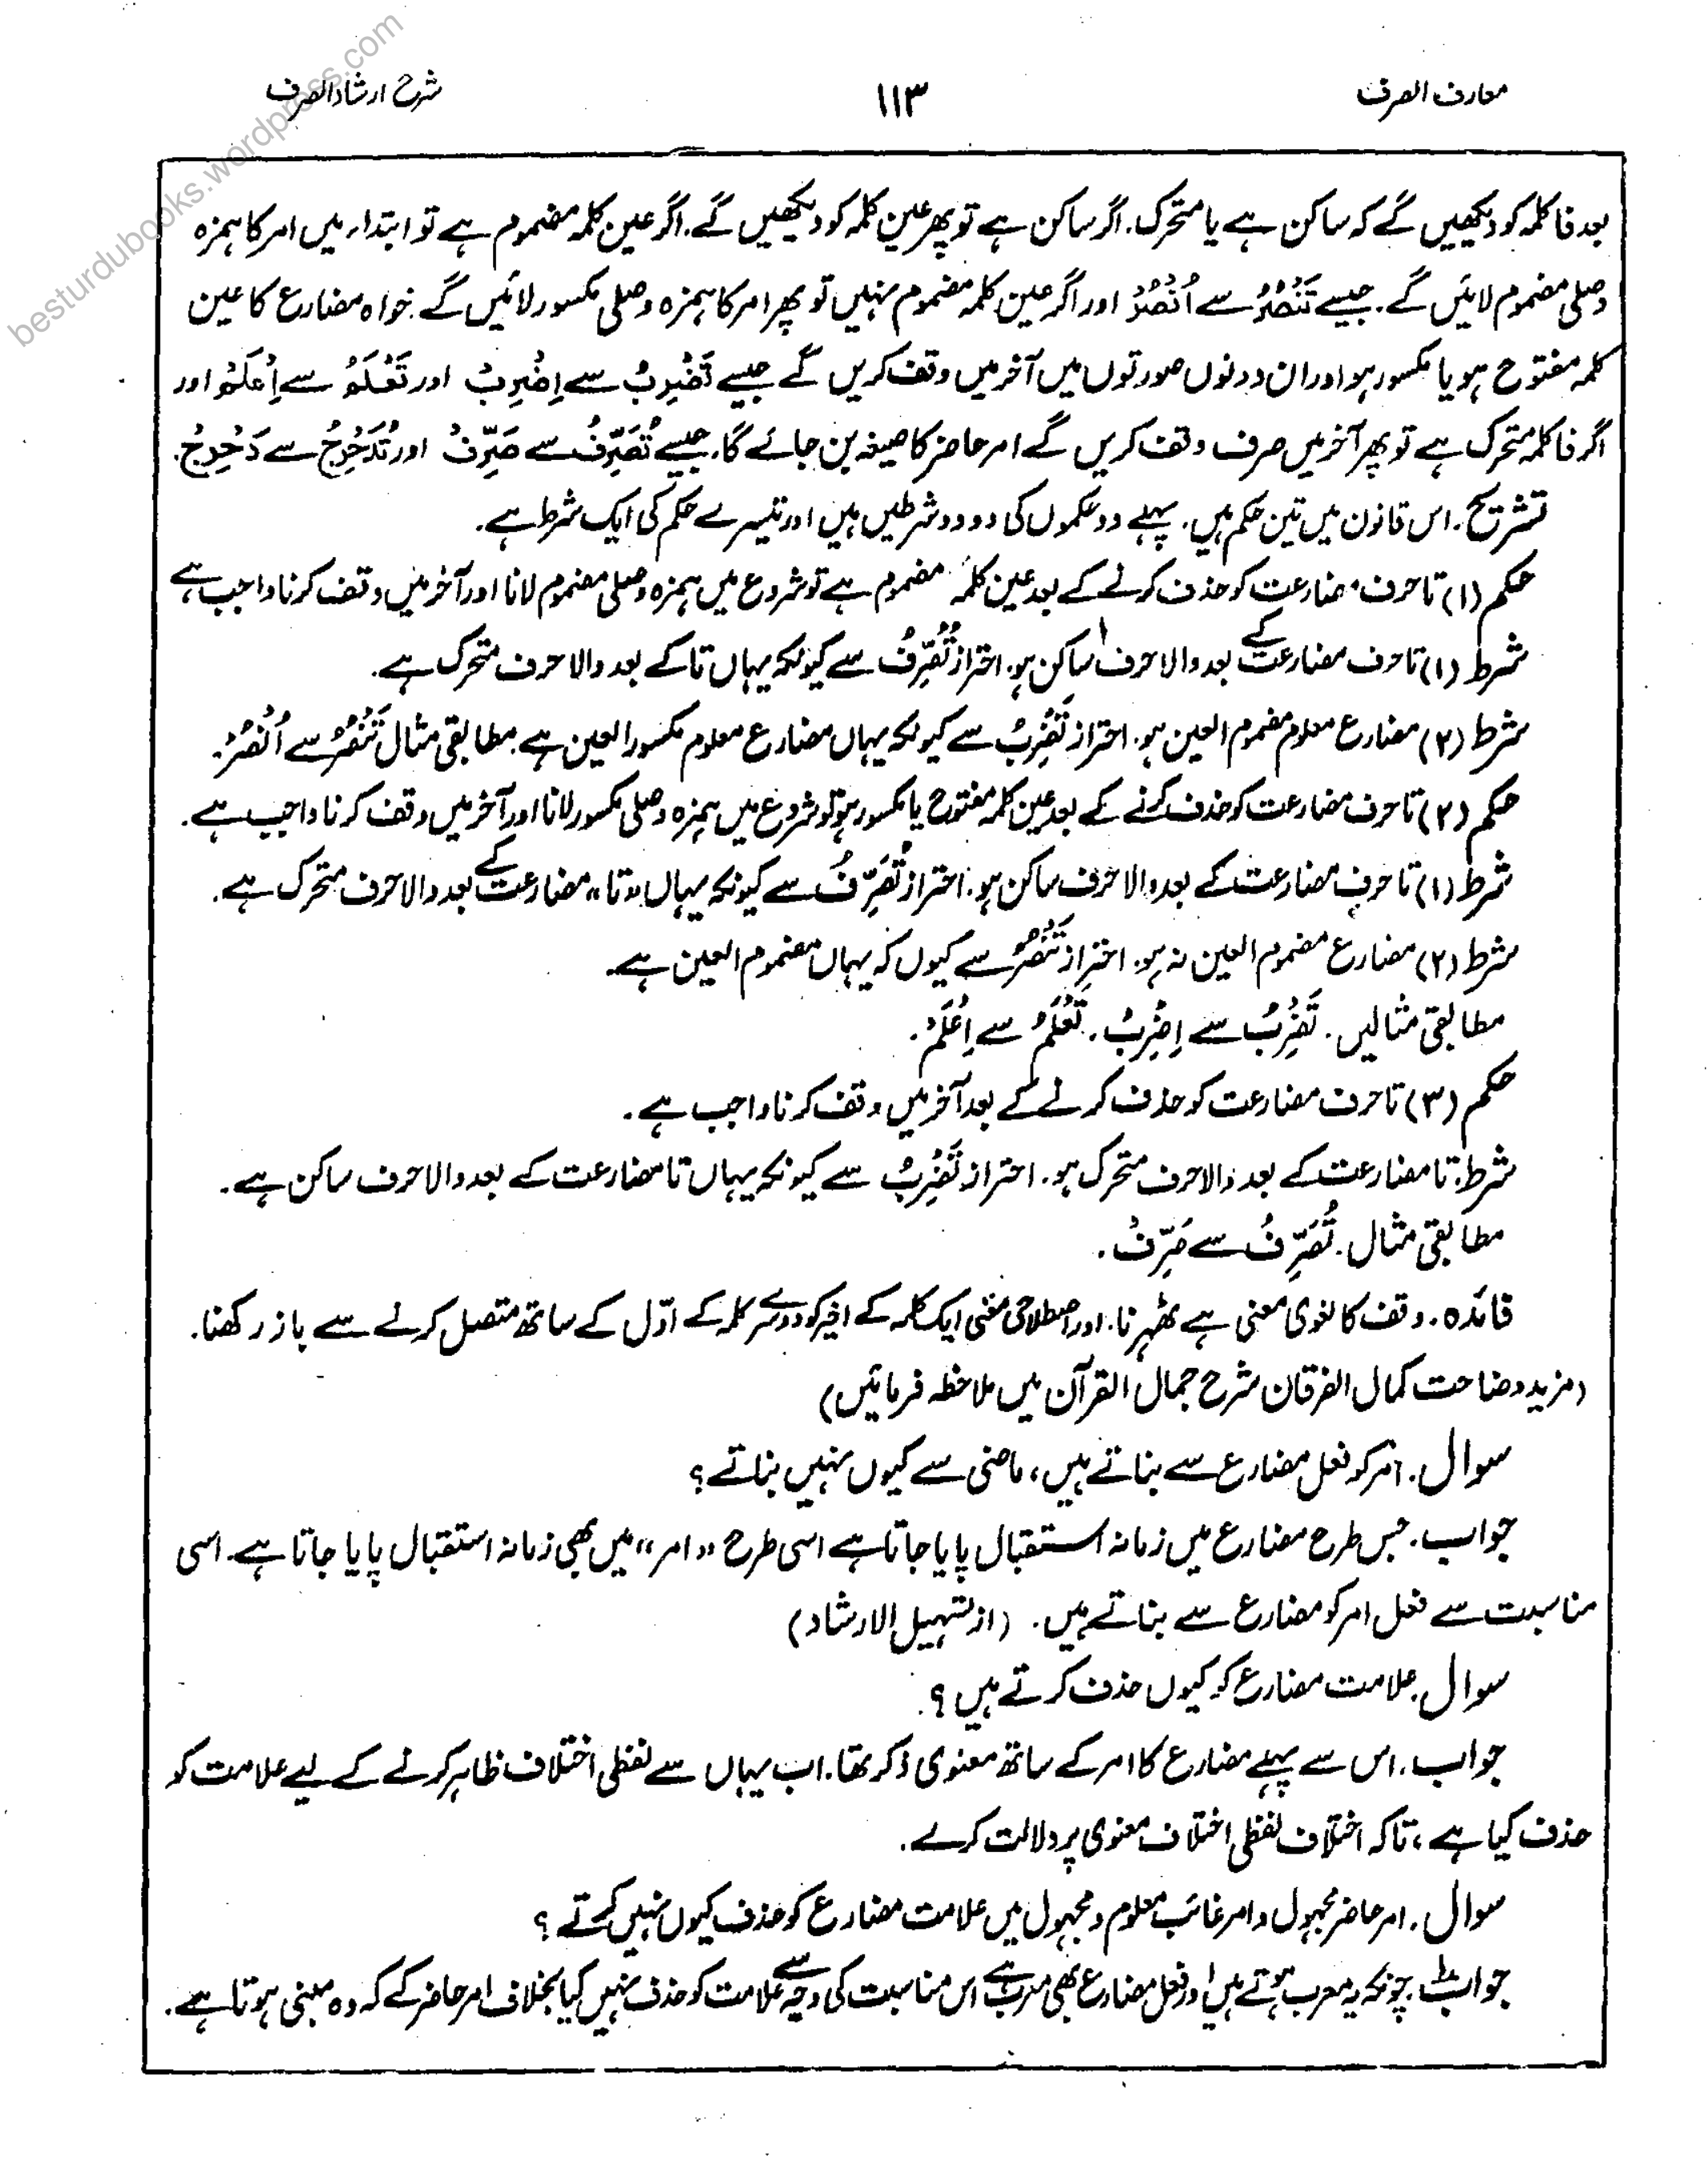 معارف الصرف
۱۱۳
شرح ارشاد الصرف
besturdubooks.wordpress.com
بعد فا کلمہ کو دیکھیں گے کہ ساکن ہے یا متحرک. اگر ساکن ہے تو پھر عین کلمہ کو دیکھیں گے. اگر عین کلمہ مضموم ہے تو ابتداء میں امر کا ہمزہ
وصلی مضموم لائیں گے. جیسے تَنْصُرُ سے اُنْصُرْ اور اگر عین کلمہ مضموم نہیں تو پھر امر کا ہمزہ وصلی مکسور لائیں گے خواہ مضارع کا عین
کلمہ مفتوح ہو یا مکسور ہو اور ان دونوں صورتوں میں آخر میں وقف کریں گے جیسے تَضْرِبُ سے اِضْرِبْ اور تَعْلَمُ سے اِعْلَمْ اور
اگر فا کلمہ متحرک ہے تو پھر آخر میں صرف وقف کریں گے امر حاضر کا صیغہ بن جائے گا. جیسے تُصَرِّفُ سے صَرِّفْ اور تُدَحْرِجُ سے دَحْرِجْ.
تشریح. اس قانون میں تین حکم ہیں. پہلے دو حکموں کی دو دو شرطیں ہیں اور تیسرے حکم کی ایک شرط ہے.
حکم (۱) تا حرف مضارعت کو حذف کرنے کے بعد عین کلمہ مضموم ہے تو شروع میں ہمزہ وصلی مضموم لانا اور آخر میں وقف کرنا واجب ہے
شرط (۱) تا حرف مضارعت کے بعد والا حرف ساکن ہو. احتراز تُصَرِّفُ سے کیونکہ یہاں تا کے بعد والا حرف متحرک ہے.
شرط (۲) مضارع معلوم مضموم العین ہو. احتراز تَضْرِبُ سے کیونکہ یہاں مضارع معلوم مکسور العین ہے. مطابقی مثال تَنْصُرُ سے اُنْصُرْ.
حکم (۲) تا حرف مضارعت کو حذف کرنے کے بعد عین کلمہ مفتوح یا مکسور ہو تو شروع میں ہمزہ وصلی مکسور لانا اور آخر میں وقف کرنا واجب ہے.
شرط (۱) تا حرف مضارعت کے بعد والا حرف ساکن ہو. احتراز تُصَرِّفُ سے کیونکہ یہاں "تا" مضارعت کے بعد والا حرف متحرک ہے.
شرط (۲) مضارع مضموم العین نہ ہو. احتراز تَنْصُرُ سے کیوں کہ یہاں مضموم العین ہے.
مطابقی مثالیں. تَضْرِبُ سے اِضْرِبْ. تَعْلَمُ سے اِعْلَمْ.
حکم (۳) تا حرف مضارعت کو حذف کرنے کے بعد آخر میں وقف کرنا واجب ہے.
شرط: تا مضارعت کے بعد والا حرف متحرک ہو. احتراز تَضْرِبُ سے کیونکہ یہاں تا مضارعت کے بعد والا حرف ساکن ہے.
مطابقی مثال. تُصَرِّفُ سے صَرِّفْ.
فائدہ. وقف کا لغوی معنی ہے ٹھہرنا. اور اصطلاحی معنی ایک کلمہ کے اخیر کو دوسرے کلمہ کے اوّل کے ساتھ متصل کرنے سے باز رکھنا.
(مزید وضاحت کمال الفرقان شرح جمال القرآن میں ملاحظہ فرمائیں)
سوال. امر کو فعل مضارع سے بناتے ہیں، ماضی سے کیوں نہیں بناتے؟
جواب. جس طرح مضارع میں زمانہ استقبال پایا جاتا ہے اسی طرح "امر" میں بھی زمانہ استقبال پایا جاتا ہے. اسی
مناسبت سے فعل امر کو مضارع سے بناتے ہیں. (از تسہیل الارشاد)
سوال. علامت مضارع کو کیوں حذف کرتے ہیں؟
جواب. اس سے پہلے مضارع کا امر کے ساتھ معنوی ذکر تھا. اب یہاں سے لفظی اختلاف ظاہر کرنے کے لیے علامت کو
حذف کیا ہے، تاکہ اختلاف لفظی اختلاف معنوی پر دلالت کرے.
سوال. امر حاضر مجہول و امر غائب معلوم و مجہول میں علامت مضارع کو حذف کیوں نہیں کرتے؟
جواب. چونکہ یہ معرب ہوتے ہیں اور فعل مضارع بھی معرب ہے اس مناسبت کی وجہ سے علامت کو حذف نہیں کیا بخلاف امر حاضر کے کہ وہ مبنی ہوتا ہے.